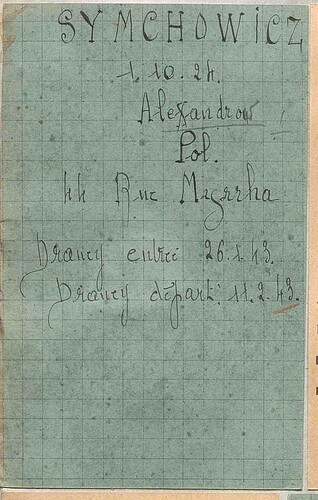 SYMCHOWICZ
1.10.24.
Alexandrow
Pol.
44 Rue Myrrha
Drancy entrée 26.1.43.
Drancy départ: 11.2.43.